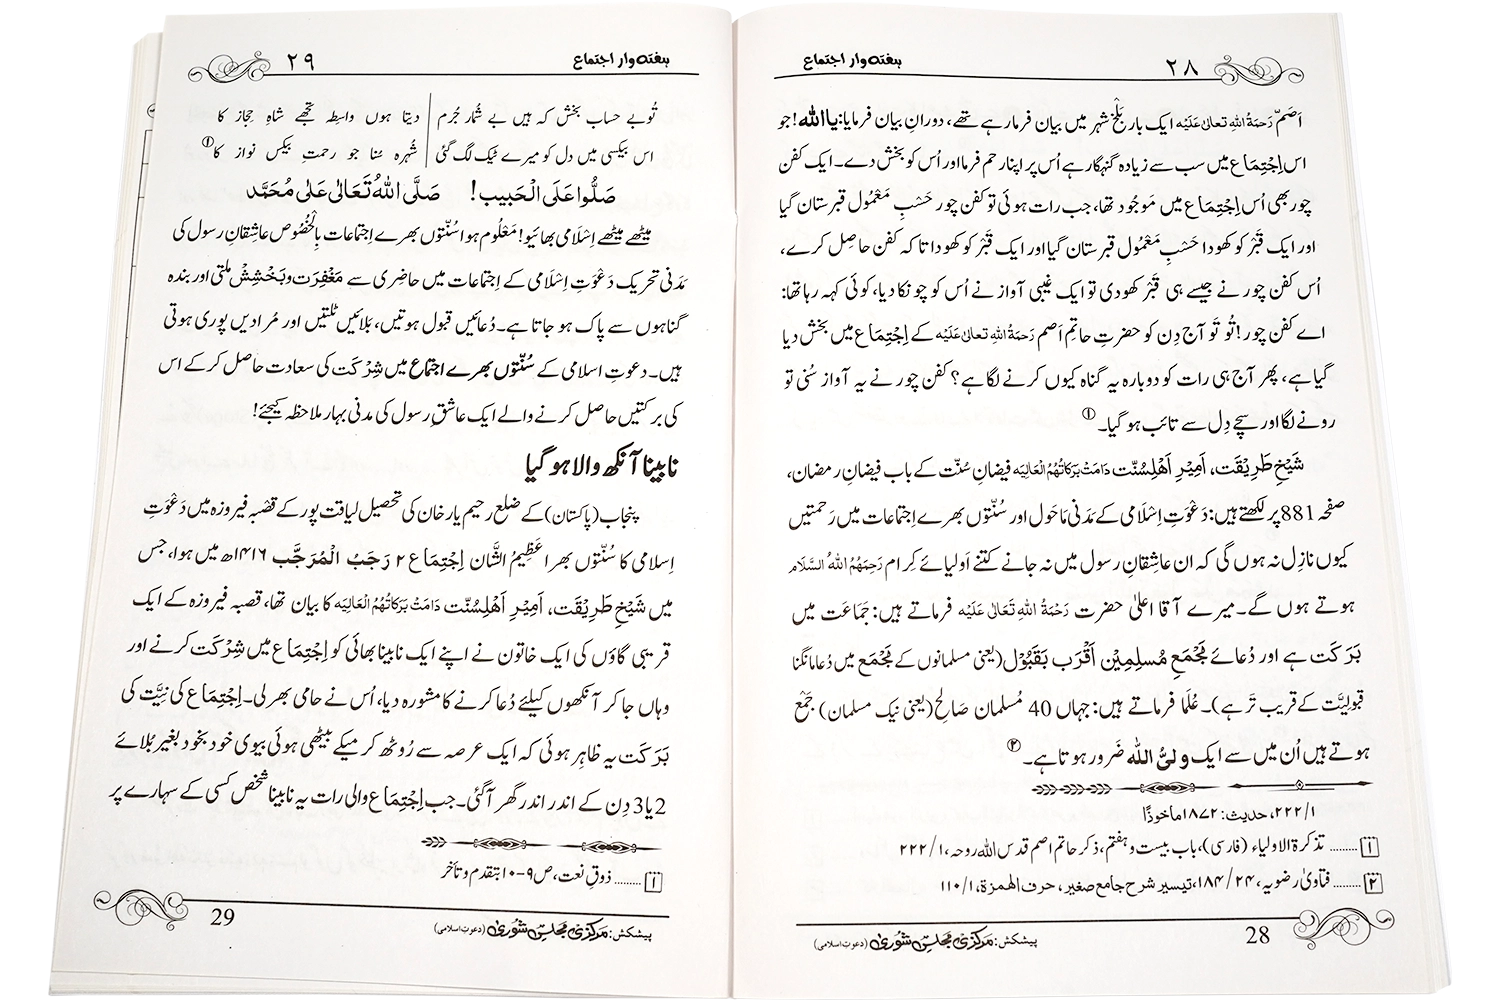 ہفتہ وار اجتماع ۲۸
اَصَمّ رَحْمَةُ اللهِ تعالٰی عَلَيْه ایک بار بَلْخ شہر میں بیان فرما رہے تھے، دورانِ بیان فرمایا: یااللہ! جو
اس اِجْتِمَاع میں سب سے زیادہ گنہگار ہے اُس پر اپنا رحم فرما اور اُس کو بخش دے۔ ایک کفن
چور بھی اُس اِجْتِمَاع میں مَوجُود تھا، جب رات ہوئی تو کفن چور حَسْبِ مَعْمُول قبرستان گیا
اور ایک قَبْر کو کھودا حَسْبِ مَعْمُول قبرستان گیا اور ایک قَبْر کو کھودا تا کہ کفن حاصِل کرے،
اُس کفن چور نے جیسے ہی قَبْر کھودی تو ایک غیبی آواز نے اُس کو چونکا دیا، کوئی کہہ رہا تھا:
اے کفن چور! تُو تَو آج دِن کو حضرتِ حاتِم اَصم رَحمَةُ اللهِ تعالٰی عَلَيْه کے اِجْتِمَاع میں بخش دیا
گیا ہے، پھر آج ہی رات کو دوبارہ یہ گناہ کیوں کرنے لگا ہے؟ کفن چور نے یہ آواز سُنی تو
رونے لگا اور سچے دِل سے تائب ہو گیا۔ ①
شَیْخِ طَرِیْقَت، اَمِیْرِ اَهْلِسُنَّت دَامَتْ بَرَکَاتُهُمُ الْعَالِیَه فیضانِ سُنّت کے باب فیضانِ رمضان،
صفحہ 881 پر لکھتے ہیں: دَعْوَتِ اِسْلَامی کے مَدَنی مَاحَول اور سُنّتوں بھرے اِجتماعات میں رَحمتیں
کیوں نازِل نہ ہوں گی کہ ان عاشقانِ رسول میں نہ جانے کتنے اَولیائے کِرام رَحِمَهُمُ اللهُ السَّلَام
ہوتے ہوں گے۔ میرے آقا اعلیٰ حضرت رَحْمَةُ اللهِ تَعَالٰی عَلَيْه فرماتے ہیں: جَمَاعَت میں
بَرَکَت ہے اور دُعائے مَجْمَعِ مُسلِمِیْن اَقْرَب بَقَبُوْل (یعنی مسلمانوں کے مَجْمَع میں دُعا مانگنا
قبولِیَّت کے قریب تَر ہے)۔ عُلَما فرماتے ہیں: جہاں 40 مُسلمان صَالِح (یعنی نیک مسلمان) جَمْع
ہوتے ہیں اُن میں سے ایک ولیُّ اللہ ضَرور ہوتا ہے۔ ②
۲۲۲/۱، حدیث: ۱۸۷۲ ماخوذًا
۱ ........ تذکرۃ الاولیاء (فارسی)، باب بیست و ہفتم، ذکر حاتم اصم قدس اللہ روحہ، ۲۲۲/۱
۲ ........ فتاویٰ رضویہ، ۱۸۴/۲۴، تیسیر شرح جامع صغیر، حرف الهمزة، ۱۱۰/۱
پیشکش: مَرکزی مَجلسِ شُوریٰ (دعوتِ اسلامی) 28
ہفتہ وار اجتماع ۲۹
تُو بے حساب بخش کہ ہیں بے شُمار جُرم دیتا ہوں واسِطہ تجھے شاہِ حِجاز کا
اس بیکسی میں دل کو میرے ٹیک لگ گئی شُہرہ سُنا جو رحمتِ بیکس نواز کا ①
صَلُّوا عَلَی الْحَبِیب! صَلَّی اللهُ تَعَالٰی عَلٰی مُحَمَّد
میٹھے میٹھے اِسْلَامی بھائیو! مَعْلُوم ہوا سُنّتوں بھرے اِجتماعات بِالْخُصُوص عاشقانِ رسول کی
مَدَنی تحریک دَعْوَتِ اِسْلَامی کے اِجتماعات میں حاضِری سے مَغْفِرَت و بَخْشِش ملتی اور بندہ
گناہوں سے پاک ہو جاتا ہے۔ دُعائیں قبول ہوتیں، بَلائیں ٹلتیں اور مُرادیں پوری ہوتی
ہیں۔ دعوتِ اسلامی کے سُنّتوں بھرے اجتماع میں شِرْکَت کی سعادت حاصل کر کے اس
کی برکتیں حاصل کرنے والے ایک عاشقِ رسول کی مدنی بہار ملاحظہ کیجئے!
نابینا آنکھ والا ہو گیا
پنجاب (پاکستان) کے ضلع رحیم یار خان کی تحصیل لیاقت پور کے قصبہ فیروزہ میں دَعْوَتِ
اِسلامی کا سُنّتوں بھرا عَظِیْمُ الشَّان اِجْتِمَاع ۲ رَجَبُ الْمُرَجَّب ۱۴۱۶ھ میں ہوا، جس
میں شَیْخِ طَرِیْقَت، اَمِیْرِ اَهْلِسُنَّت دَامَتْ بَرَکَاتُهُمُ الْعَالِیَه کا بیان تھا، قصبہ فیروزہ کے ایک
قریبی گاؤں کی ایک خاتون نے اپنے ایک نابینا بھائی کو اِجْتِمَاع میں شِرْکَت کرنے اور
وہاں جا کر آنکھوں کیلئے دُعا کرنے کا مشورہ دیا، اُس نے حامی بھر لی۔ اِجْتِمَاع کی نِیَّت کی
بَرَکَت یہ ظاہِر ہوئی کہ ایک عرصہ سے رُوٹھ کر میکے بیٹھی ہوئی بیوی خود بخود بغیر بُلائے
2 یا 3 دِن کے اندر اندر گھر آگئی۔ جب اِجْتِمَاع والی رات یہ نابینا شخص کسی کے سہارے پر
۱ ........ ذوقِ نعت، ص ۹-۱۰ بتقدم و تأخر
پیشکش: مَرکزی مَجلسِ شُوریٰ (دعوتِ اسلامی) 29